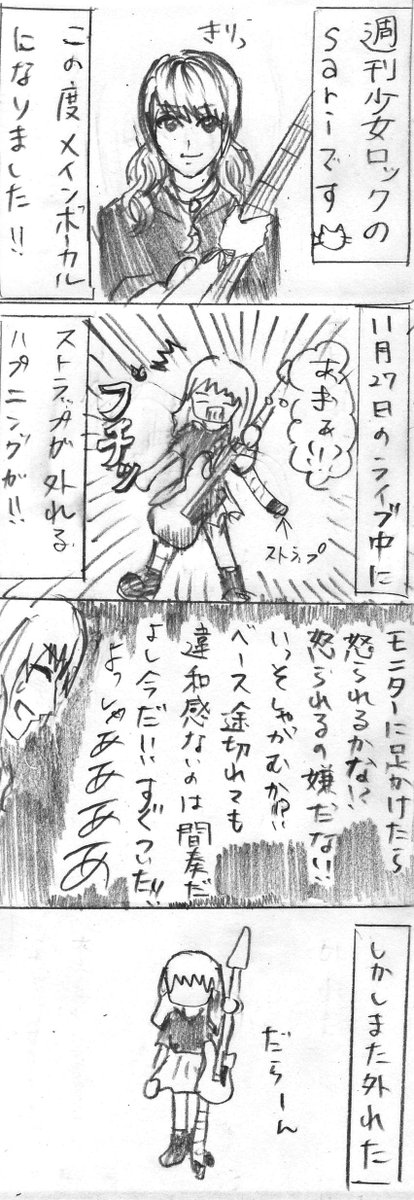 週刊少女ロックの
sariです
きりっ
この度メインボーカル
になりました!!
11月27日のライブ中に
あまぁい!!
ブチッ
ストラップ
ストラップが外れる
ハプニングが!!
モニターに足かけたら
怒られるかな!?
怒られるの嫌だない!!
いっそしゃがむか!?!!
ベース途切れても
違和感ないのは間奏だ
よし今だ!!!すぐついた!!
よっしゃああああ
しかしまた外れた
だらーん